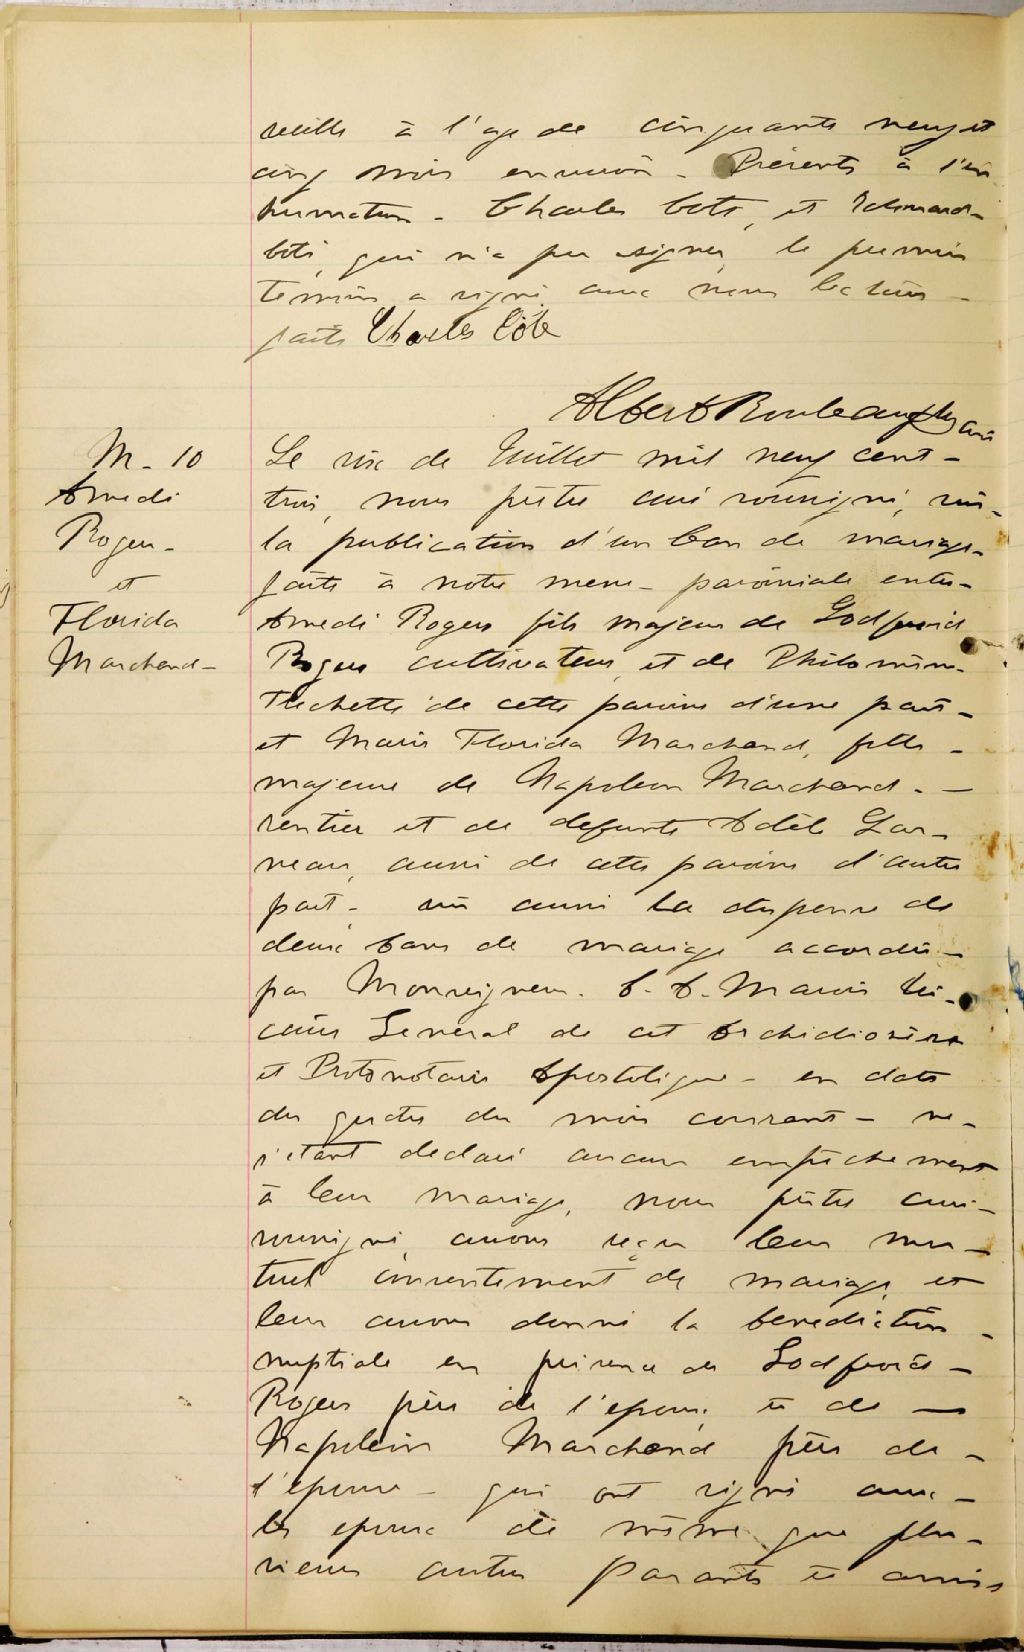 veille à l'age de cinquante neuf et
cinq mois environ - Présents à l'in
humation - Charles Coté, et Edmond
Coté, qui n'a pu signer, le premier
temoin a signé avec nous lecture
faite Charles Côté
Albert Rouleau ptre curé
M - 10
Amedé
Rogers
et
Florida
Marchand
Le six de Juillet mil neuf cent
trois, nous prêtre curé soussigné, vu
la publication d'un ban de mariage
faite à notre messe paroissiale entre
Amedé Rogers fils majeur de Godfroid
Rogers cultivateur, et de Philomène
Frechette de cette paroisse d'une part
et Marie Florida Marchand, fille
majeure de Napoleon Marchand
rentier et de defunte Adèle Gar-
neau, aussi de cette paroisse d'autre
part - vu aussi la dispense de
deux bans de mariage accordée
par Monseigneur C. A. Marois Vi-
caire General de cet Archidiocèse
et Protonotaire Apostolique - en date
du quatre du mois courant - ne
s'étant declaré aucun empêchement
à leur mariage, nous prêtre curé
soussigné, avons reçu leur mu-
tuel consentement de mariage et
leur avons donné la benediction
nuptiale en présence de Godfroid
Rogers père de l'epoux, et de
Napoléon Marchand père de
l'epouse - qui ont signé avec
les epoux de même que plu-
sieurs autres parents et amis